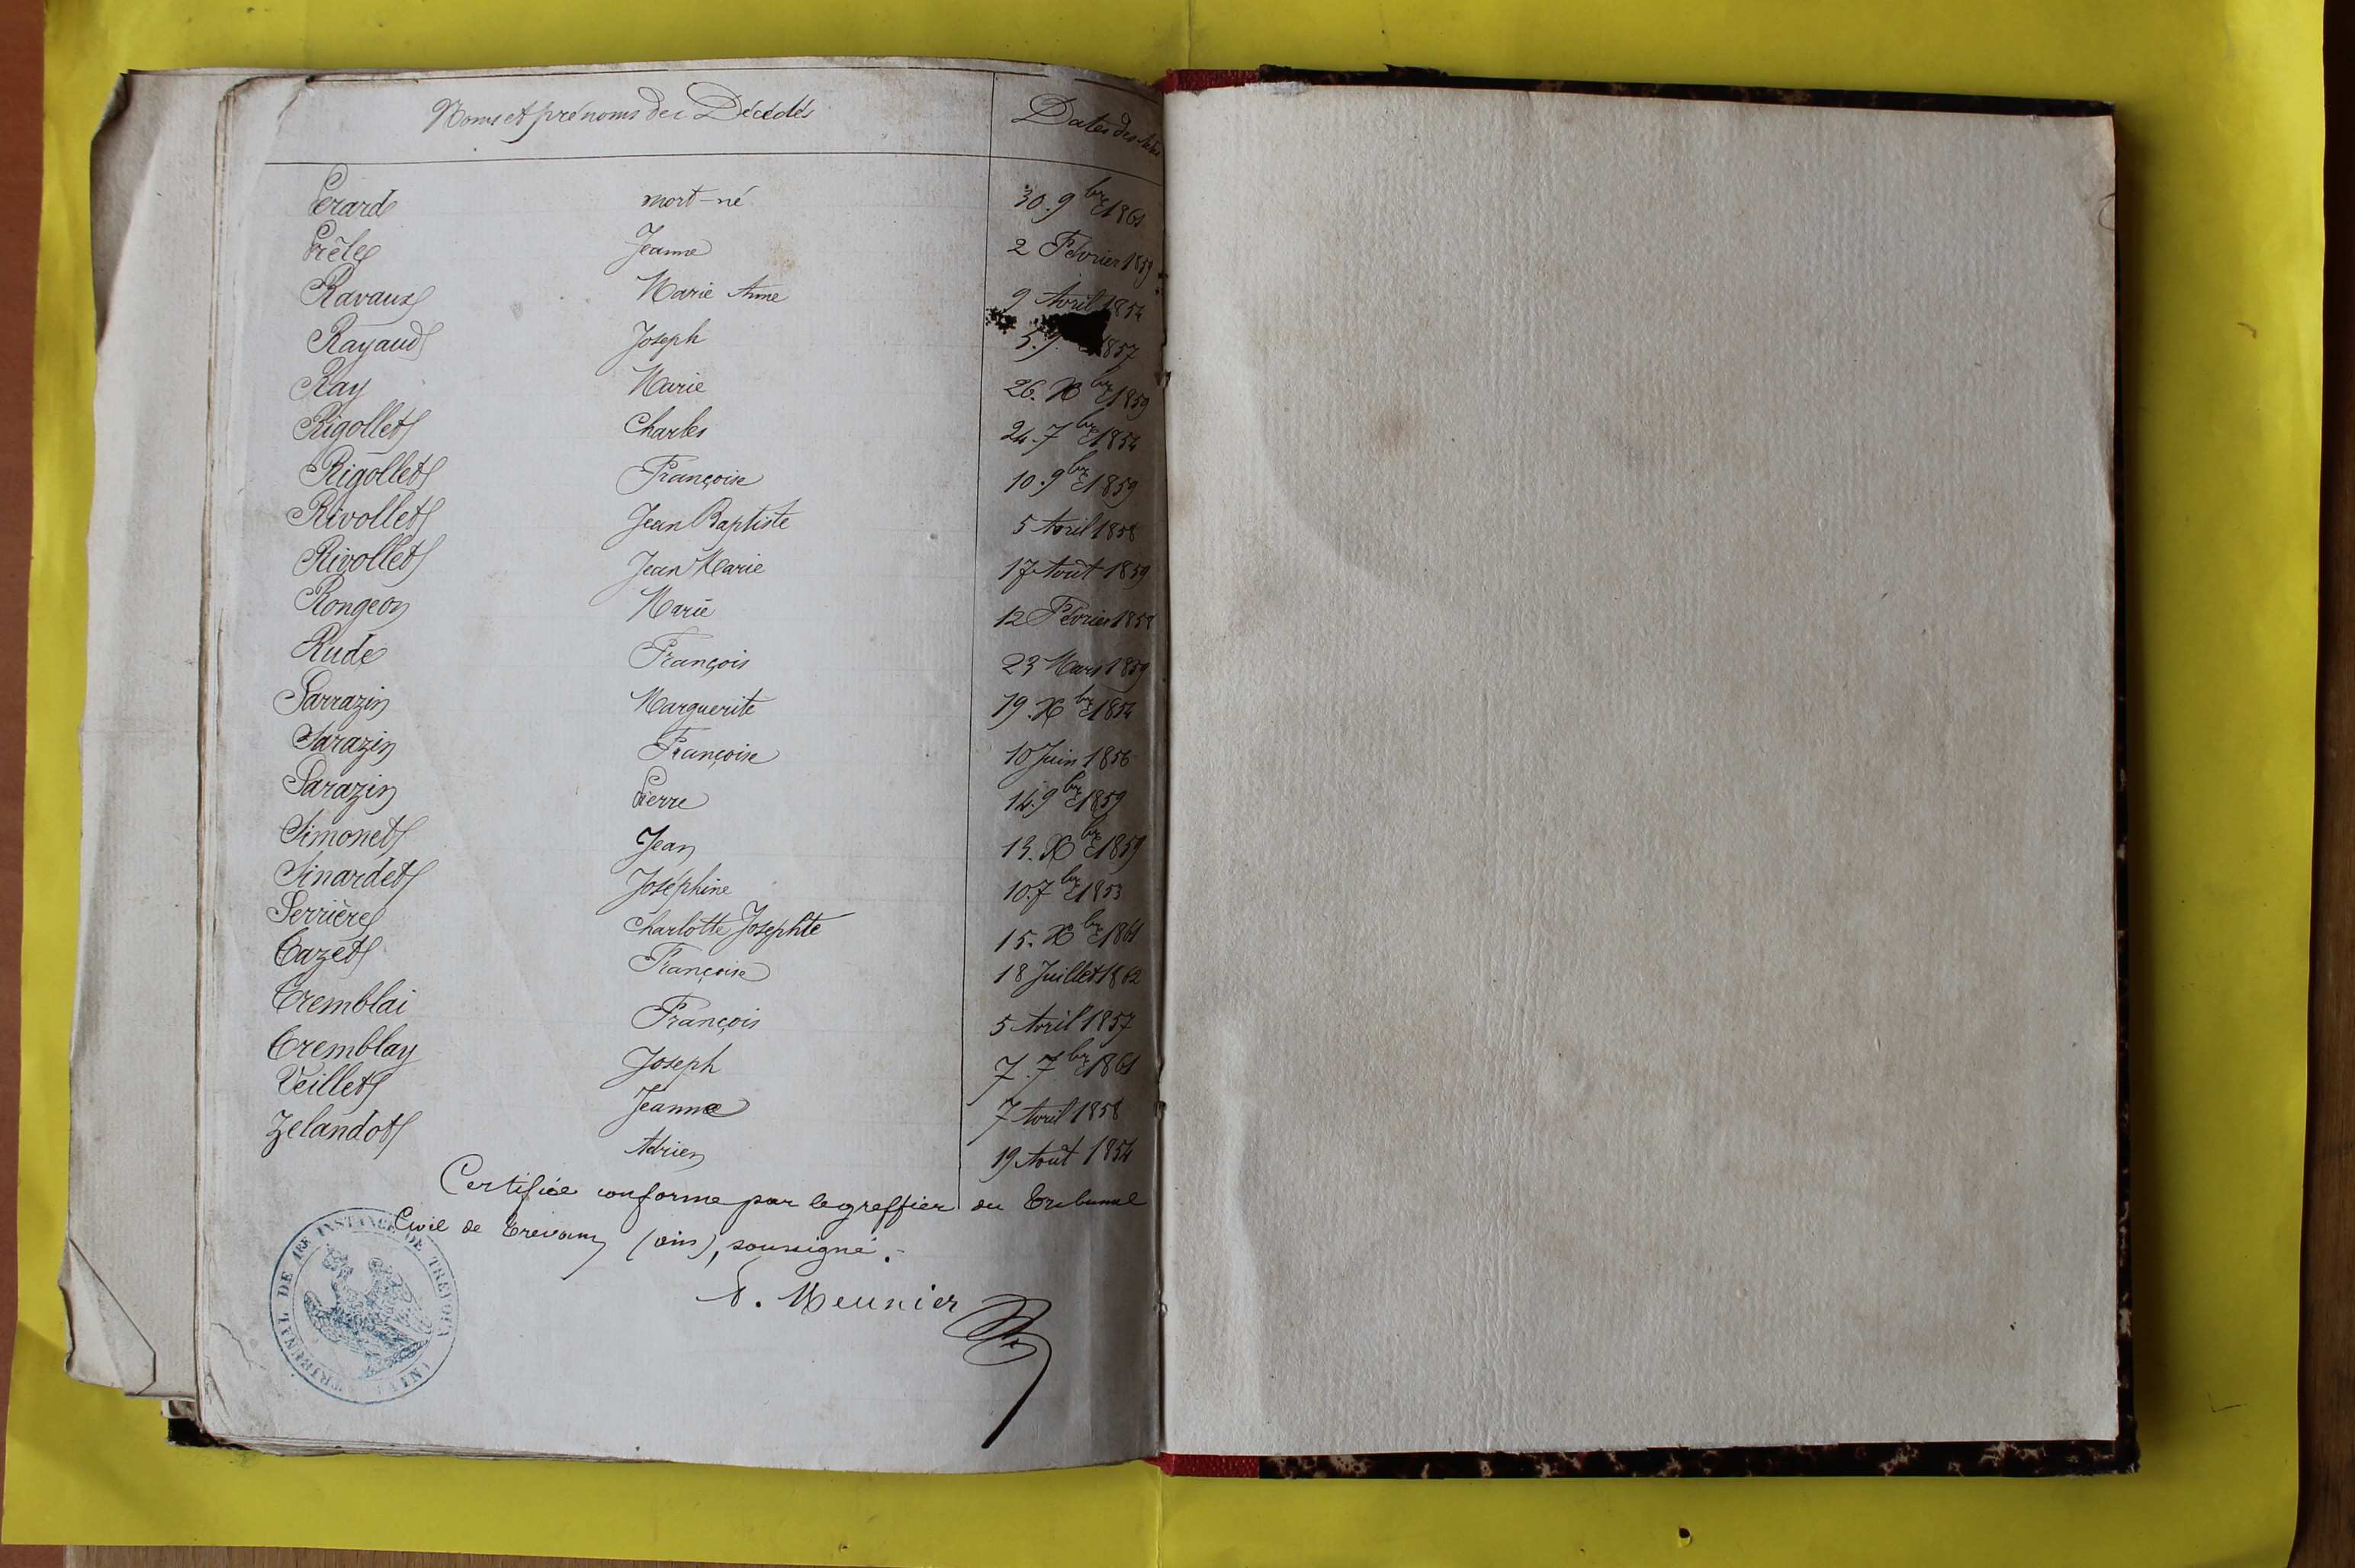 Noms et prénoms des Décédés Dates des Actes
Perard mort-né 30. 9bre 1861
Prêle Jeanne 2 Février 1859
Ravaux Marie Anne 9 Avril 1854
Rayaud Joseph 5. 9 1857
Ray Marie 26. Xbre 1859
Rigollet Charles 24. 7bre 1854
Rigollet Françoise 10. 9bre 1859
Rivollet Jean Baptiste 5 Avril 1858
Rivollet Jean Marie 17 Août 1859
Rongeon Marie 12 Février 1858
Rude François 23 Mars 1859
Sarrazin Marguerite 19. Xbre 1854
Sarazin Françoise 10 Juin 1856
Sarazin Pierre 14. 9bre 1859
Simonet Jean 13. Xbre 1859
Sinardet Joséphine 10. 7bre 1853
Serrière Charlotte Josephte 15. Xbre 1861
Tazet Françoise 18 Juillet 1862
Tremblai François 5 Avril 1857
Tremblay Joseph 7. 7bre 1861
Veillet Jeanne 7 Avril 1858
Zelandot Adrien 19 Août 1854
Certifiée conforme par le greffier du Tribunal
Civil de Trévoux (ain), soussigné.
Meunier
TRIBUNAL DE 1RE INSTANCE DE TREVOUX (AIN)